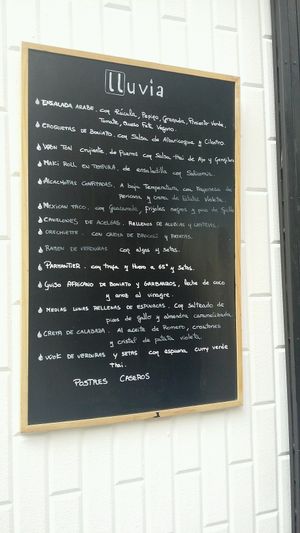 lluvia
ENSALADA ARABE. con Rúcula, Pepino, Granada, Pimiento Verde,
Tomate, Queso Feta Vegano.
CROQUETAS DE BONIATO. con Salsa de Albaricoque y Cilantro.
WON TON crujiente de Puerros con Salsa thai de Ajo y Gengibre
MAKI ROLL EN TEMPURA de ensaladilla con
ALCACHOFAS CONFITADAS, A baja Temperatura con Mayonesa de
y crema de Patata Violeta.
MEXICAN TACO. con Guacamole, Frijoles negros y pico de Gallo
CANELONES DE ACELGAS, RELLENOS DE ALUBIAS Y
ORECHIETTE. con CREMA DE BROCOLI Y
RAMEN DE VERDURAS con algas y setas.
PARMANTIER. con trufa y Huevo a 65° y setas.
GUISO AFRICANO DE BONIATO Y GARBANZOS, leche de coco
y arroz al vinagre.
MEDIAS LUNAS RELLENAS DE ESPINACAS. con Salteado de
pico de gallo y almendra caramelizada
CREMA DE CALABAZA. Al aceite de Romero, croutones
y cristal de patata violeta.
WOK DE VERDURAS y SETAS con espuma curry verde
Thai.
POSTRES CASEROS